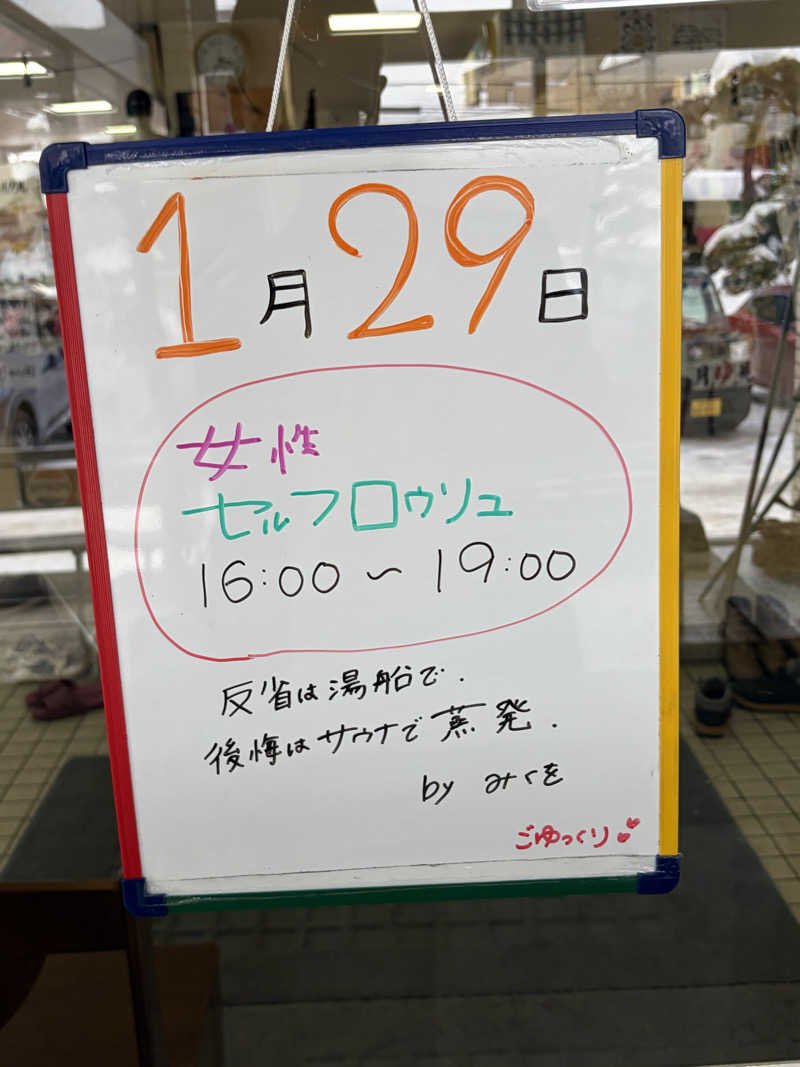 1月29日
女性
セルフロウリュ
16:00〜19:00
反省は湯船で.
後悔はサウナで蒸発.
by みくを
ごゆっくり